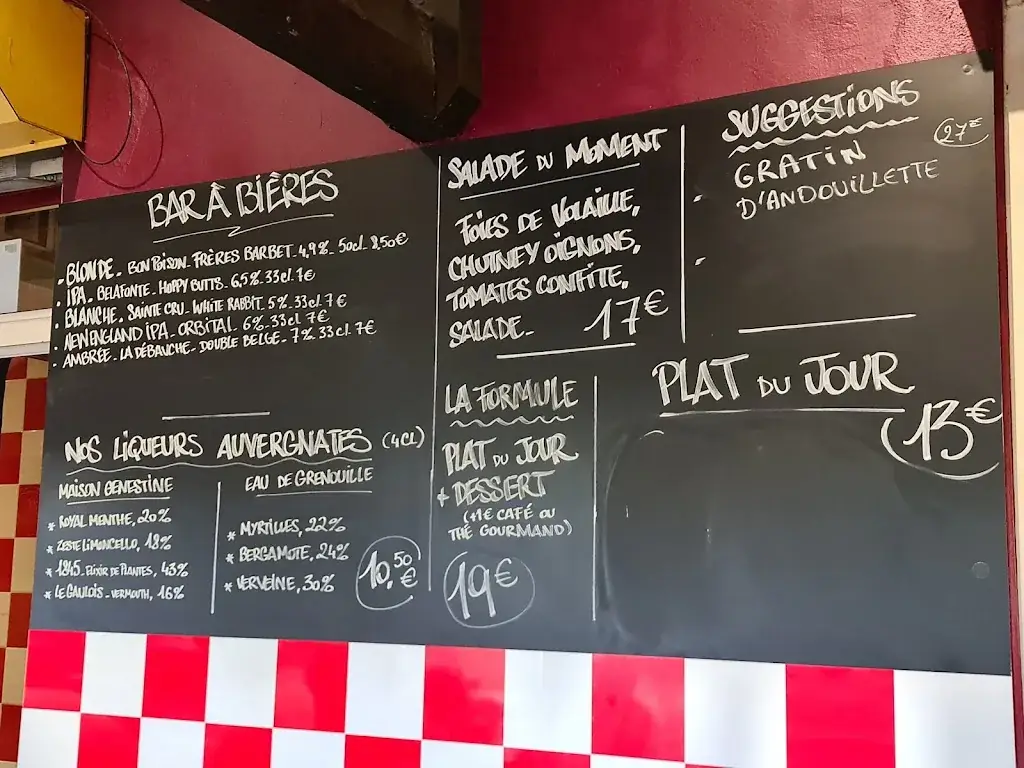 BAR À BIÈRES
- BLONDE - BON POISON - FRÈRES BARBET - 4,9% - 50cl - 8,50€
- IPA - BELAFONTE - HOPPY BUTTS - 6,5% - 33cl - 7€
- BLANCHE - SAINTE CRU - WHITE RABBIT - 5% - 33cl - 7€
- NEW ENGLAND IPA - ORBITAL - 6% - 33cl - 7€
- AMBRÉE - LA DÉBANCHE - DOUBLE BELGE - 7% - 33cl - 7€
NOS LIQUEURS AUVERGNATES (4CL)
MAISON GENESTINE
* ROYAL MENTHE, 20%
* ZESTE LIMONCELLO, 18%
* 1845 - ELIXIR DE PLANTES, 43%
* LE GAULOIS - VERMOUTH, 16%
EAU DE GRENOUILLE
* MYRTILLES, 22%
* BERGAMOTE, 24%
* VERVEINE, 30%
10,50€
SALADE DU MOMENT
FOIES DE VOLAILLE,
CHUTNEY OIGNONS,
TOMATES CONFITE,
SALADE - 17€
LA FORMULE
PLAT DU JOUR
+ DESSERT
(+1€ CAFÉ OU
THÉ GOURMAND)
19€
SUGGESTIONS
27€
- GRATIN
D'ANDOUILLETTE
-
PLAT DU JOUR
13€